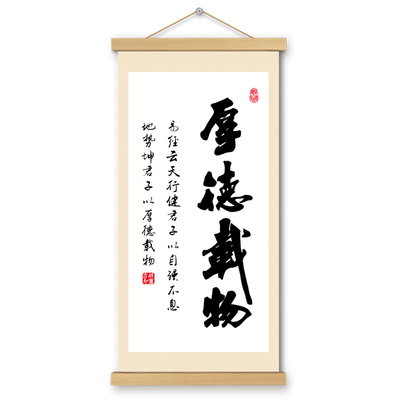 厚德載物
易經云天行健君子以自強不息
地勢坤君子以厚德載物